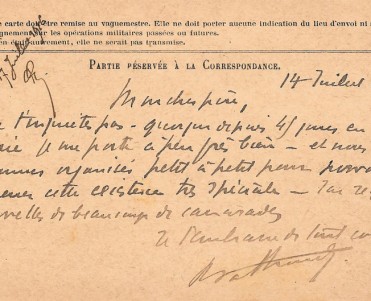 e carte doit être remise au vaguemestre. Elle ne doit porter aucune indication du lieu d'envoi ni
gnement sur les opérations militaires passées ou futures.
en était autrement, elle ne serait pas transmise.
PARTIE RÉSERVÉE À LA CORRESPONDANCE.
14 Juillet
Mon cher père,
t'inquiètes pas - quoique depuis 45 jours en
je me porte à peu près bien - et nous
sommes organisés petit à petit pour pouvoir
mener cette existence très spéciale - J'ai
nouvelles de beaucoup de camarades
Je t'embrasse de tout